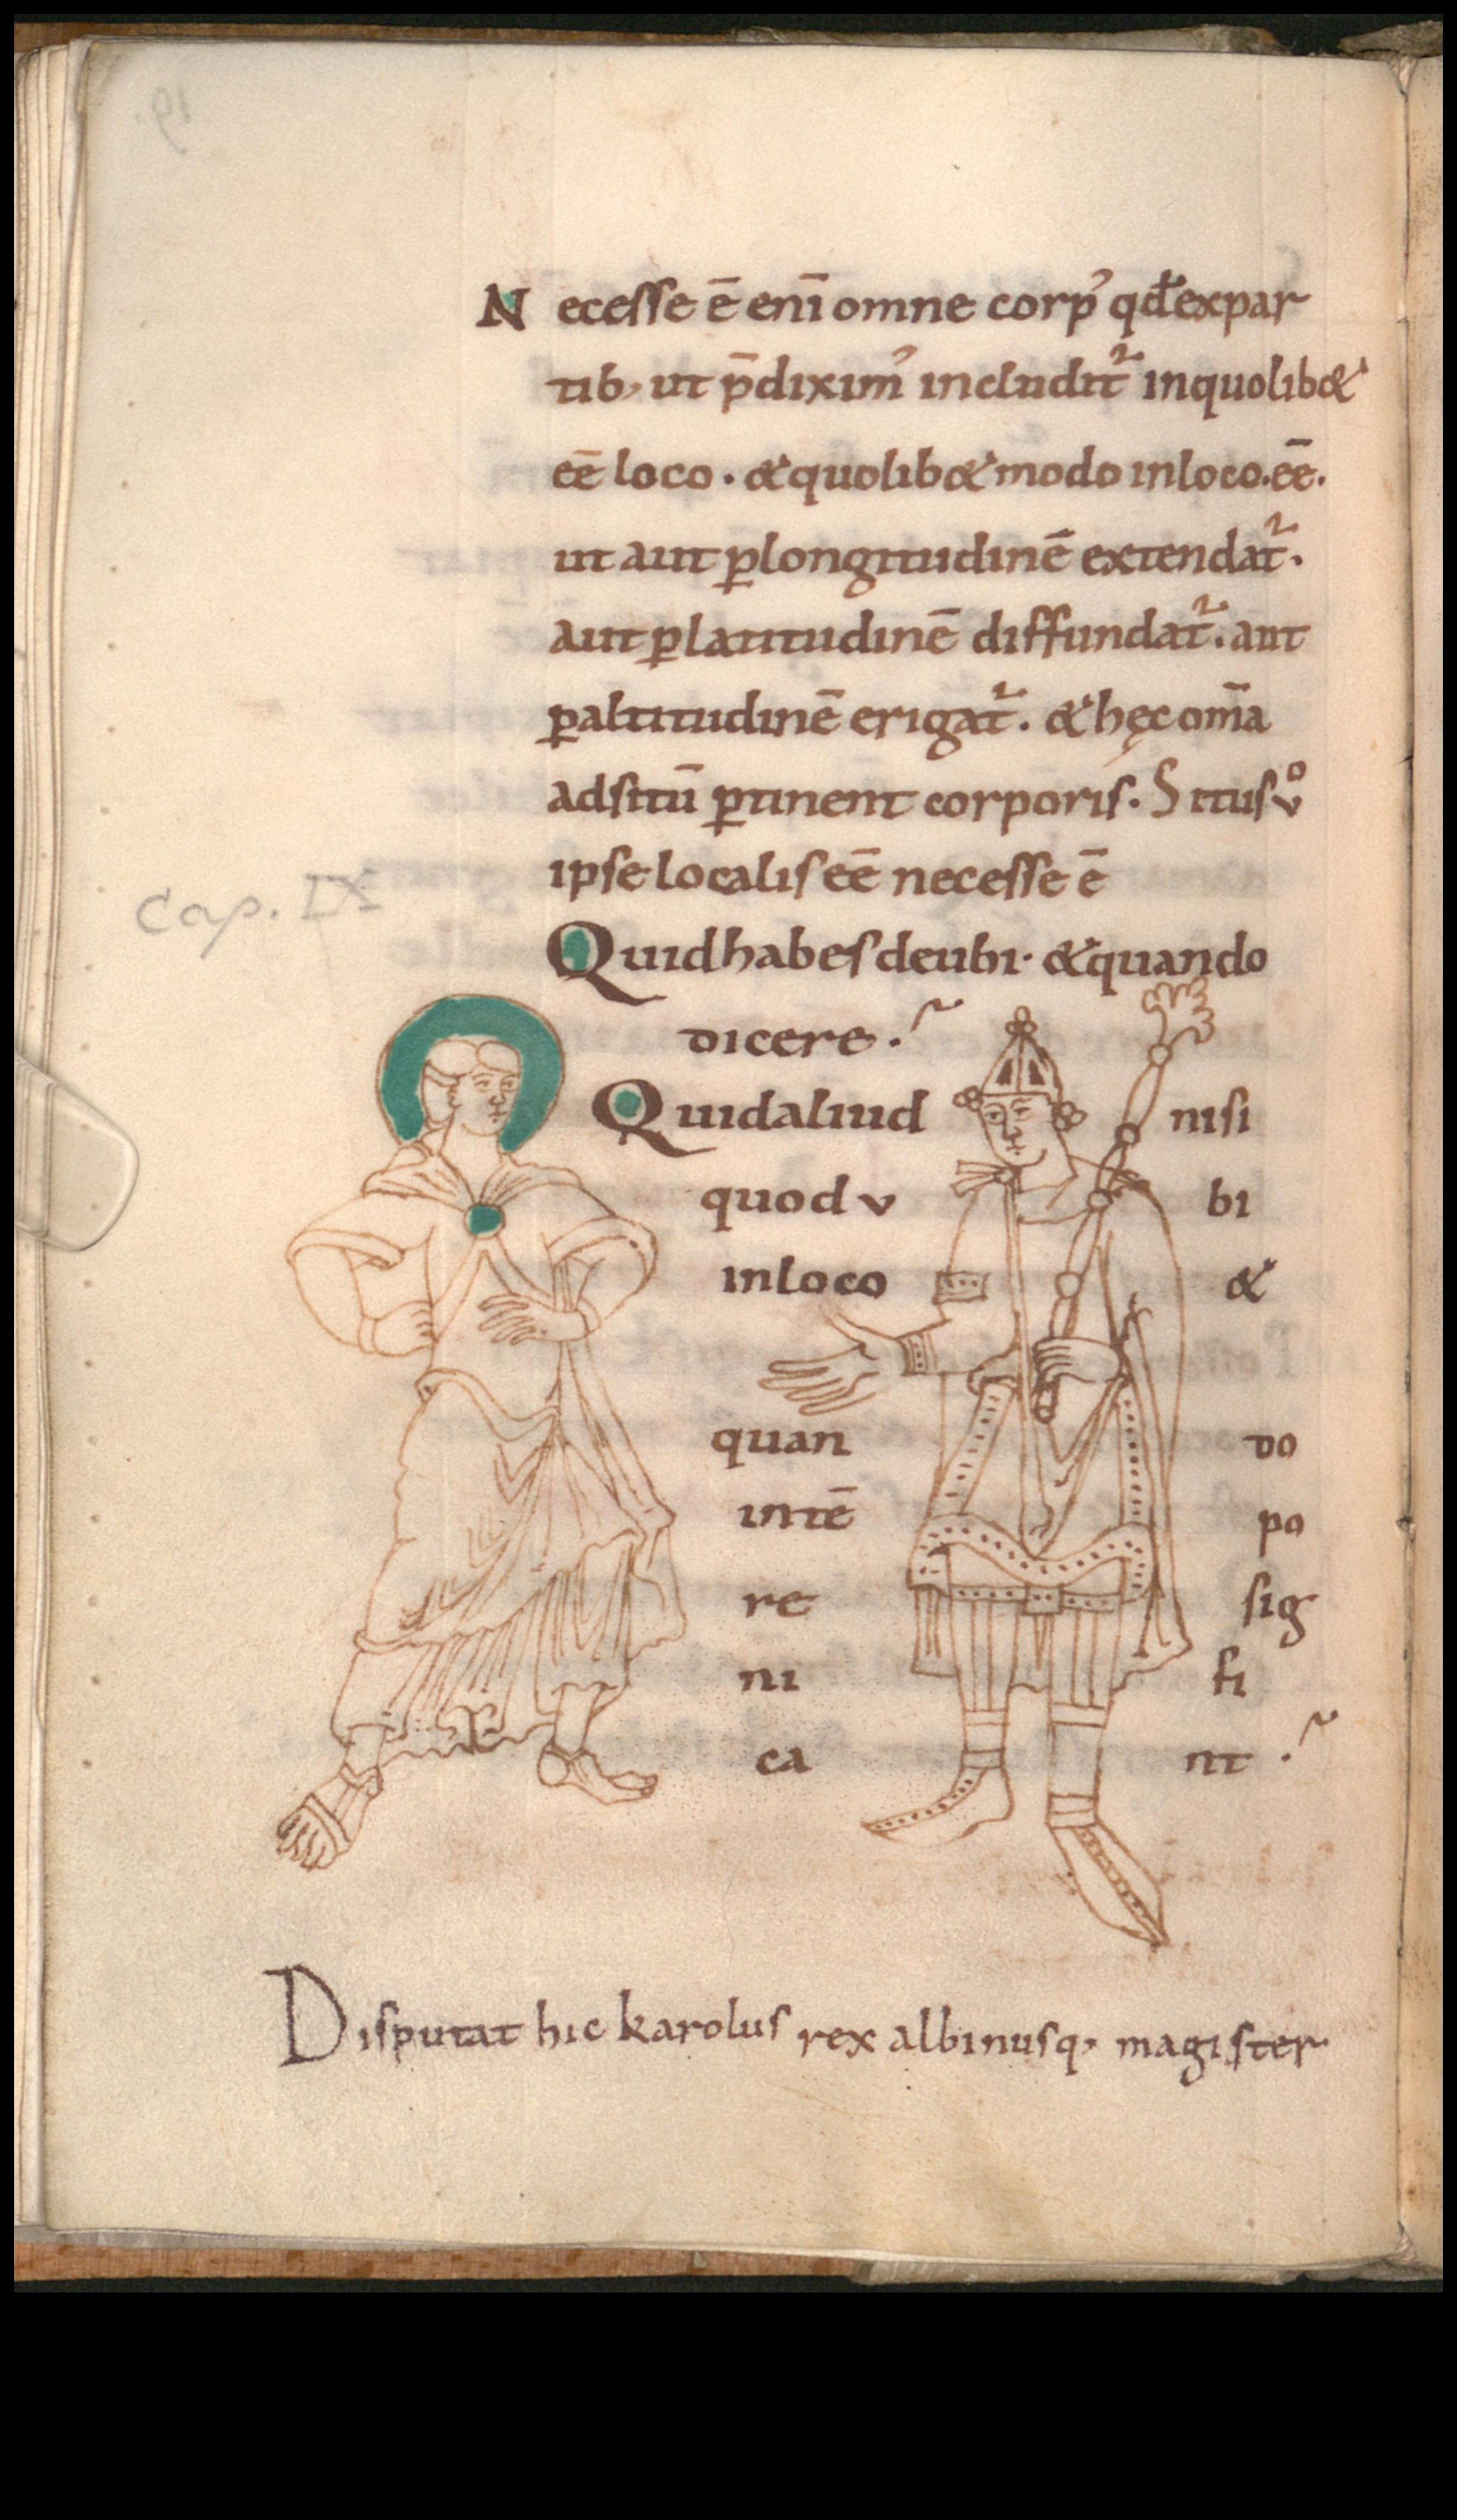 N ecesse ē enī omne corpꝰ qđ expar
tib; ut p̄diximꝰ includit᷑ inquolib&
eē loco. & quolib& modo inloco. eē.
ut aut ꝑlongitudinē extendat᷑.
aut ꝑlatitudinē diffundat᷑. aut
ꝑaltitudinē erigat᷑. & hęc om̄a
adsitū ꝑtinent corporis. Situs vͦ
ipse localis eē necesse ē
Cap. IX
Quid habes de ubi. & quando
dicere.
Quid aliud nisi
quod v bi
inloco &
quan do
intē po
re sig
ni fi
ca nt.
Disputat hic karolus rex albinusq; magister